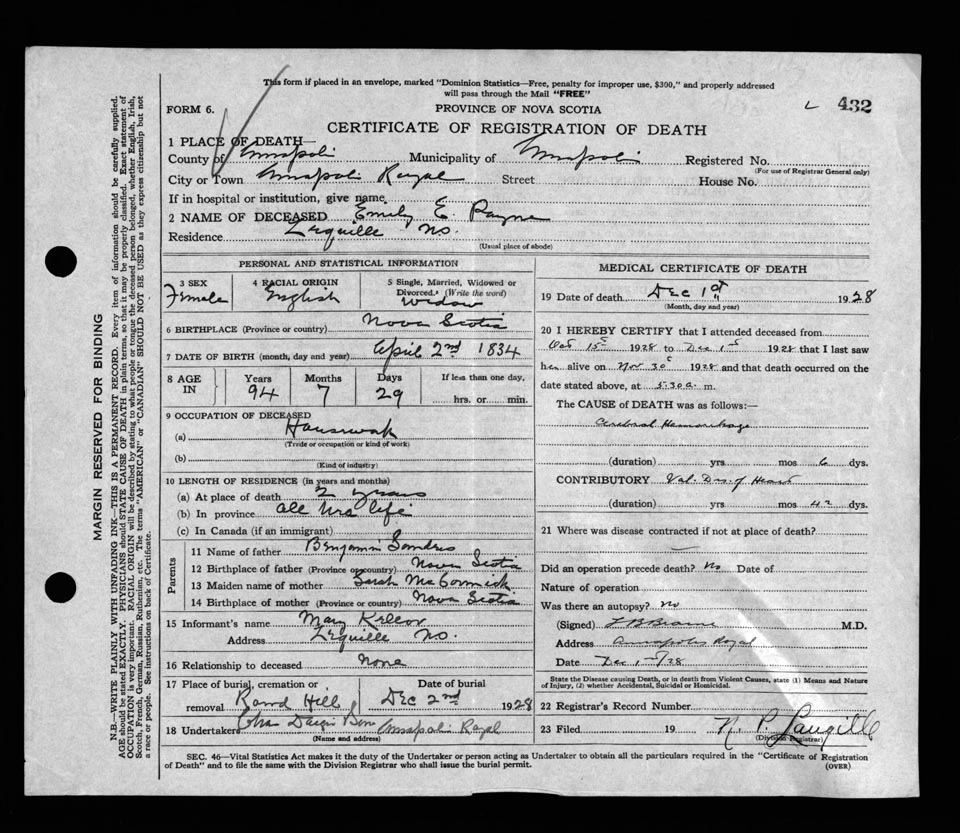 This form if placed in an envelope, marked "Dominion Statistics—Free, penalty for improper use, $300," and properly addressed
will pass through the Mail "FREE"
FORM 6.
PROVINCE OF NOVA SCOTIA
L 432
CERTIFICATE OF REGISTRATION OF DEATH
1 PLACE OF DEATH—
County of Annapolis Municipality of Annapolis Registered No.
(For use of Registrar General only)
City or Town Annapolis Royal Street House No.
If in hospital or institution, give name
2 NAME OF DECEASED Emily E. Payne
Residence Lequille NS.
(Usual place of abode)
PERSONAL AND STATISTICAL INFORMATION
3 SEX Female
4 RACIAL ORIGIN English
5 Single, Married, Widowed or Divorced. (Write the word) Widow
6 BIRTHPLACE (Province or country) Nova Scotia
7 DATE OF BIRTH (month, day and year) April 2nd 1834
8 AGE IN Years 94 Months 7 Days 29 If less than one day, hrs. or min.
9 OCCUPATION OF DECEASED
(a) Housework
(Trade or occupation or kind of work)
(b)
(Kind of industry)
10 LENGTH OF RESIDENCE (in years and months)
(a) At place of death 2 years
(b) In province all hrs life
(c) In Canada (if an immigrant)
Parents
11 Name of father Benjamin Sanders
12 Birthplace of father (Province or country) Nova Scotia
13 Maiden name of mother Sarah McCormick
14 Birthplace of mother (Province or country) Nova Scotia
15 Informant's name Mary
Address Lequille NS.
16 Relationship to deceased None
17 Place of burial, cremation or removal Round Hill Date of burial Dec 2nd 1928
18 Undertaker Annapolis Royal
(Name and address)
MEDICAL CERTIFICATE OF DEATH
19 Date of death Dec 1st 1928
(Month, day and year)
20 I HEREBY CERTIFY that I attended deceased from
Oct 15 1928 to Dec 1st 1928 that I last saw
her alive on Nov 30 1928 and that death occurred on the
date stated above, at 5.30 a. m.
The CAUSE of DEATH was as follows:—
Cerebral Hemorrhage
(duration) yrs mos 6 dys.
CONTRIBUTORY Val. Dis. of Heart
(duration) yrs mos 42 dys.
21 Where was disease contracted if not at place of death?
Did an operation precede death? No Date of
Nature of operation
Was there an autopsy? No
(Signed) M.D.
Address Annapolis Royal
Date Dec 1st/28
State the Disease causing Death, or in death from Violent Causes, state (1) Means and Nature
of Injury, (2) whether Accidental, Suicidal or Homicidal.
22 Registrar's Record Number
23 Filed 19 N. P. Langille
(Division Registrar)
SEC. 46—Vital Statistics Act makes it the duty of the Undertaker or person acting as Undertaker to obtain all the particulars required in the "Certificate of Registration
of Death" and to file the same with the Division Registrar who shall issue the burial permit.
(OVER)
MARGIN RESERVED FOR BINDING
N.B.—WRITE PLAINLY WITH UNFADING INK—THIS IS A PERMANENT RECORD. Every item of information should be carefully supplied.
AGE should be stated EXACTLY. PHYSICIANS should STATE CAUSE OF DEATH in plain terms, so that it may be properly classified. Exact statement of
OCCUPATION is very important. RACIAL ORIGIN will be described by stating to what people or tongue the deceased person belonged, whether English, Irish,
Scotch, French, German, Russian, Ruthenian, etc. The terms "AMERICAN" or "CANADIAN" SHOULD NOT BE USED as they express citizenship but not
a race or people. See instructions on back of Certificate.